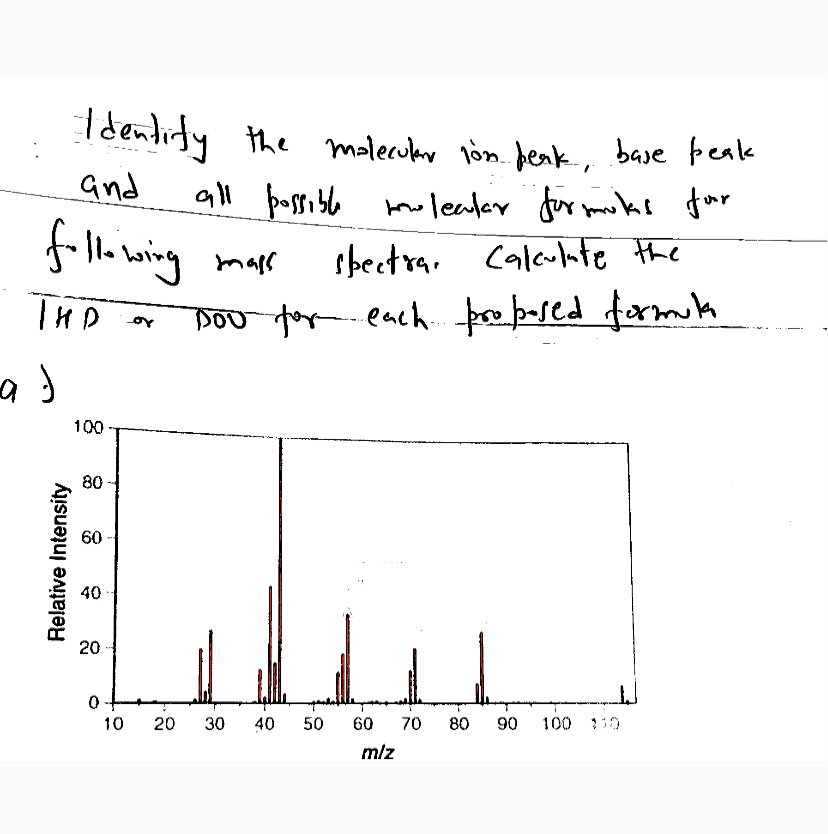 Identify the molecular ion peak, base peak
and all possible molecular formulas for
following mass spectra. Calculate the
IHD or DOU for each proposed formula
a)
100
80
60
40
20
0
Relative Intensity
10 20 30 40 50 60 70 80 90 100 110
m/z